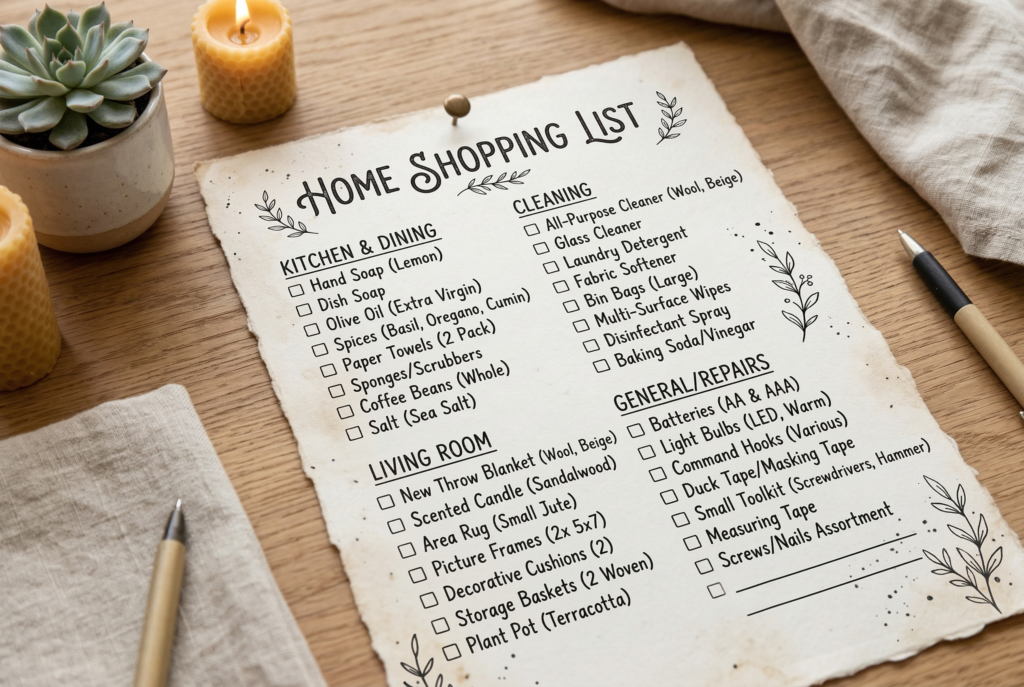 HOME SHOPPING LIST
KITCHEN & DINING
Hand Soap (Lemon)
Dish Soap
Olive Oil (Extra Virgin)
Spices (Basil, Oregano, Cumin)
Paper Towels (2 Pack)
Sponges/Scrubbers
Coffee Beans (Whole)
Salt (Sea Salt)
LIVING ROOM
New Throw Blanket (Wool, Beige)
Scented Candle (Sandalwood)
Area Rug (Small Jute)
Picture Frames (2x 5x7)
Decorative Cushions (2)
Storage Baskets (2 Woven)
Plant Pot (Terracotta)
CLEANING
All-Purpose Cleaner (Wool, Beige)
Glass Cleaner
Laundry Detergent
Fabric Softener
Bin Bags (Large)
Multi-Surface Wipes
Disinfectant Spray
Baking Soda/Vinegar
GENERAL/REPAIRS
Batteries (AA & AAA)
Light Bulbs (LED, Warm)
Command Hooks (Various)
Duck Tape/Masking Tape
Small Toolkit (Screwdrivers, Hammer)
Measuring Tape
Screws/Nails Assortment